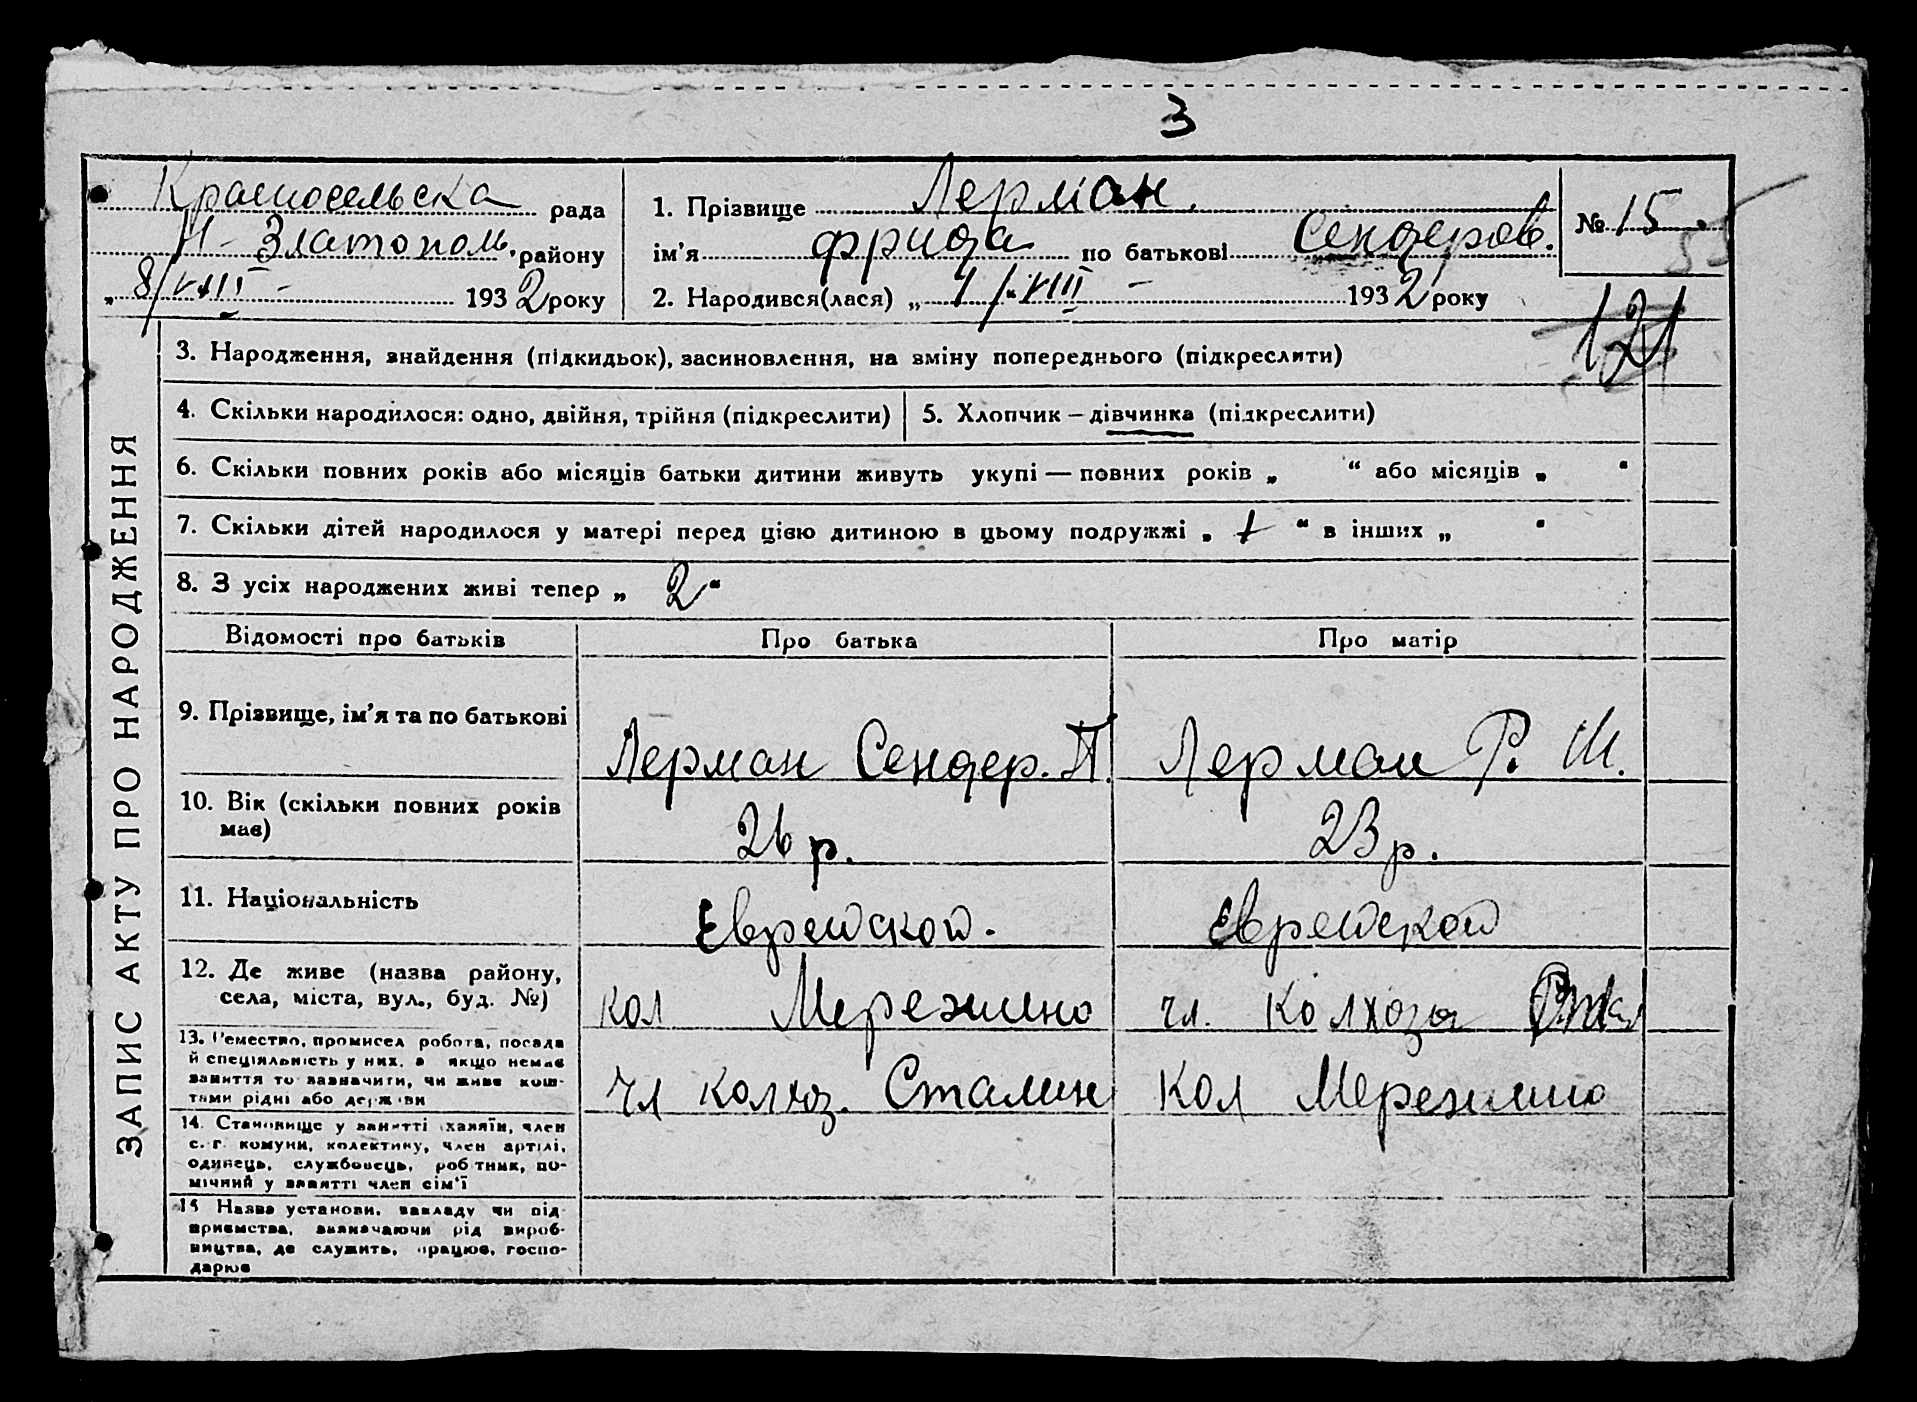 3
Красносельска рада
Н-Златополь, району
„ 8/VIII - 1932 року
1. Прізвище Лерман.
ім'я Фрида по батькові Сендеров.
2. Народився(лася) „ 1/VIII - 1932 року
№ 15
55
121
ЗАПИС АКТУ ПРО НАРОДЖЕННЯ
3. Народження, знайдення (підкидьок), засиновлення, на зміну попереднього (підкреслити)
4. Скільки народилося: одно, двійня, трійня (підкреслити)
5. Хлопчик – дівчинка (підкреслити)
6. Скільки повних років або місяців батьки дитини живуть укупі — повних років „ “ або місяців „ “
7. Скільки дітей народилося у матері перед цією дитиною в цьому подружжі „ 1 “ в інших „ “
8. З усіх народжених живі тепер „ 2 “
Відомості про батьків Про батька Про матір
9. Прізвище, ім'я та по батькові
Лерман Сендер. П. Лерман Р. Ш.
10. Вік (скільки повних років
має)
26 р. 23 р.
11. Національність
Еврейской. Еврейской
12. Де живе (назва району,
села, міста, вул., буд. №)
кол Мережино чл. Колхоза
13. Ремество, промисел робота, посада
й спеціяльність у них, а якщо немає
заняття то зазначити, чи живе кош-
тами рідні або держави
чл колхоз. Сталин Кол Мережино
14. Становище у занятті (хазяїн, член
с.-г. комуни, колективу, член артілі,
одинець, службовець, робітник, по-
мічний у занятті член сім'ї
15 Назва установи, закладу чи під-
приємства, визначаючи рід вироб-
ництва, де служить, працює, госпо-
дарює